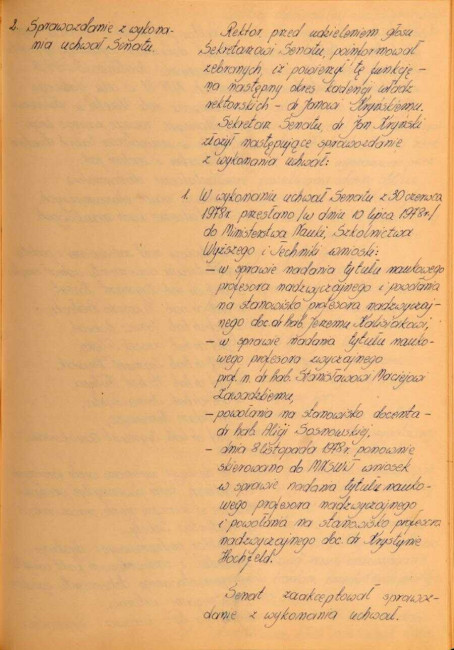 2. Sprawozdanie z wykona-
nia uchwał Senatu.
Rektor przed udzieleniem głosu
Sekretarzowi Senatu, poinformował
zebranych, iż powierzył tę funkcję -
na następny okres kadencji władz
rektorskich - dr Janowi Kryńskiemu.
Sekretarz Senatu, dr Jan Kryński
złożył następujące sprawozdanie
z wykonania uchwał:
1. W wykonaniu uchwał Senatu z 30 czerwca
1978r. przesłano /w dniu 10 lipca 1978r./
do Ministerstwa Nauki, Szkolnictwa
Wyższego i Techniki wnioski:
- w sprawie nadania tytułu naukowego
profesora nadzwyczajnego i powołania
na stanowisko profesora nadzwyczaj-
nego doc. dr hab. Jeremu
- w sprawie nadania tytułu nauko-
wego profesora zwyczajnego
prof. n. dr hab. Stanisławowi Maciejowi
Zawadzkiemu,
- powołania na stanowisko docenta -
dr hab. Alicji Sosnowskiej,
- dnia 8 listopada 1978r. ponownie
skierowano do MNSzWiT wniosek
w sprawie nadania tytułu nauko-
wego profesora nadzwyczajnego
i powołania na stanowisko profesora
nadzwyczajnego doc. dr Krystynie
Hochfeld.
Senat zaakceptował sprawoz-
danie z wykonania uchwał.